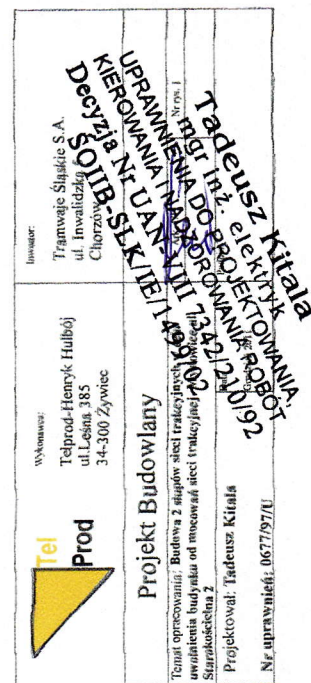 Tel
Prod
Wykonawca:
Telprod-Henryk Hulbój
ul.Leśna 385
34-300 Żywiec
Inwestor:
Tramwaje Śląskie S.A.
ul. Inwalidzka
Chorzów
Projekt Budowlany
Temat opracowania: Budowa 2 słupów sieci trakcyjnych
uwolnienia budynku od mocowań sieci trakcyjnej
Starokościelna 2
Nr rys. 1
Projektował: Tadeusz Kitala
Nr uprawnień: 0677/97/U
Tadeusz Kitala
mgr inż. elektryk
UPRAWNIENIA DO PROJEKTOWANIA,
KIEROWANIA I NADZOROWANIA ROBÓT
Decyzja Nr UAN VIII 7342/210/92
ŚOIIB SLK/IE/